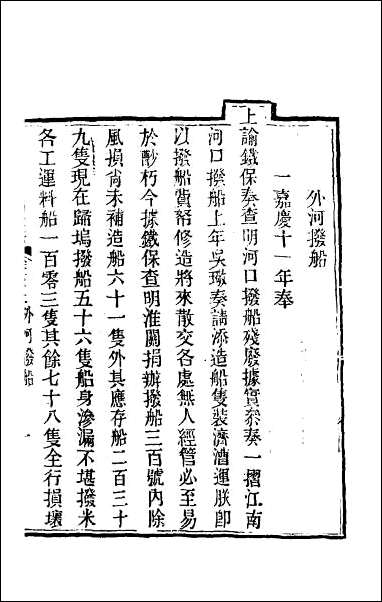 外河撥船
一嘉慶十一年奉
上諭鐵保奏查明河口撥船殘廢據實叅奏一摺江南
河口撥船上年吳璥奏請添造船隻裝濟漕運朕卽
以撥船貲帑修造將來散交各處無人經管必至易
於酖朽今據鐵保查明淮關捐辦撥船三百號內除
風損尙未補造船六十一隻外其應存船二百三十
九隻現在歸塢撥船五十六隻船身滲漏不堪撥米
各工運料船一百零三隻其餘七十八隻全行損壞
外河撥船 一